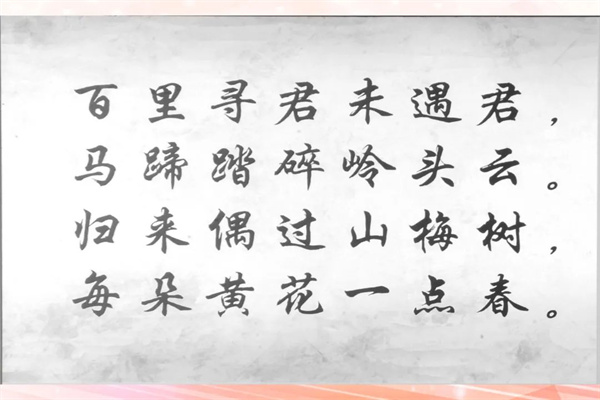 百里寻君未遇君，
马蹄踏碎岭头云。
归来偶过山梅树，
每朵黄花一点春。